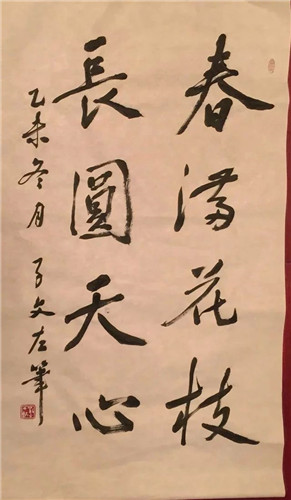 春满花枝
長圓天心
乙未冬月 子文左筆